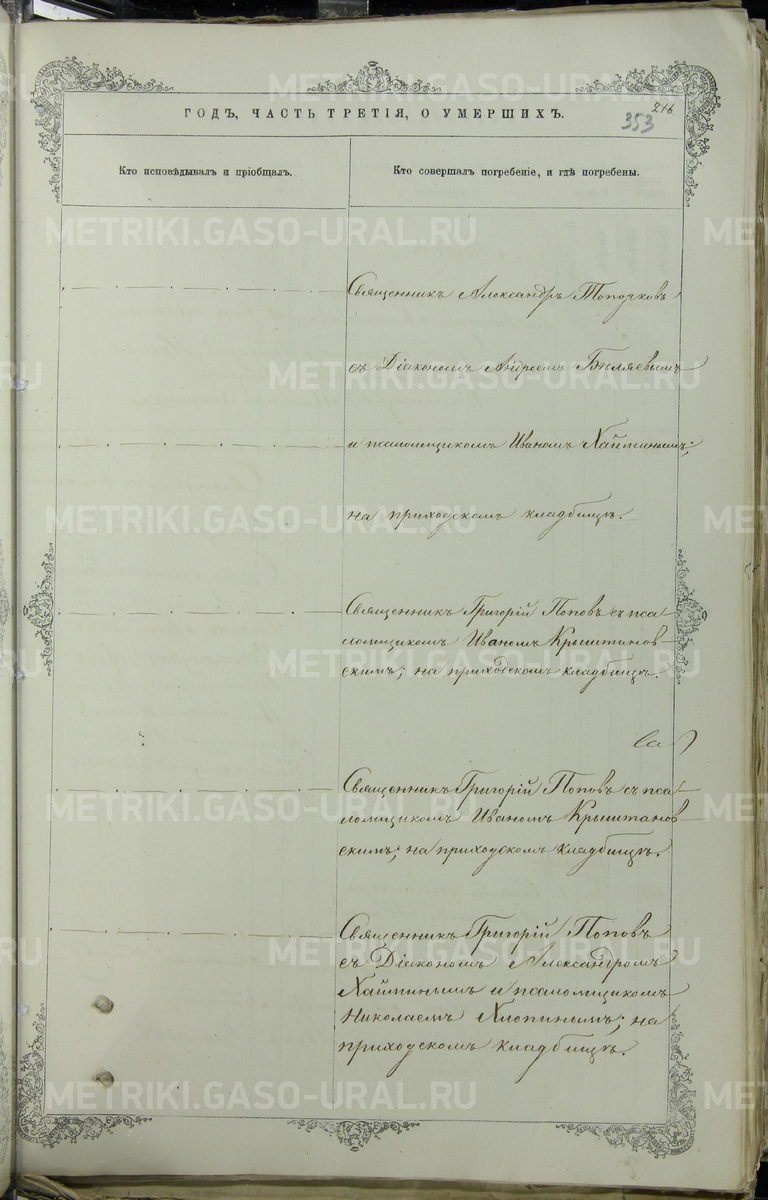 ГОДЪ, ЧАСТЬ ТРЕТІЯ, О УМЕРШИХЪ.
216
353
Кто исповѣдывалъ и пріобщалъ.
Кто совершалъ погребеніе, и гдѣ погребены.
Священникъ Александръ Топорковъ
съ Діакономъ Андреемъ Бѣляевымъ
и псаломщикомъ Иваномъ Хайминымъ;
на приходскомъ кладбищѣ.
Священникъ Григорій Поповъ съ пса
ломщикомъ Иваномъ Крыштанов
скимъ; на приходскомъ кладбищѣ.
Священникъ Григорій Поповъ съ пса
ломщикомъ Иваномъ Крыштанов
скимъ; на приходскомъ кладбищѣ.
Священникъ Григорій Поповъ
съ Діакономъ Александромъ
Хайминымъ и псаломщикомъ
Николаемъ Хлопинымъ; на
приходскомъ кладбищѣ.
METRIKI.GASO-URAL.RU